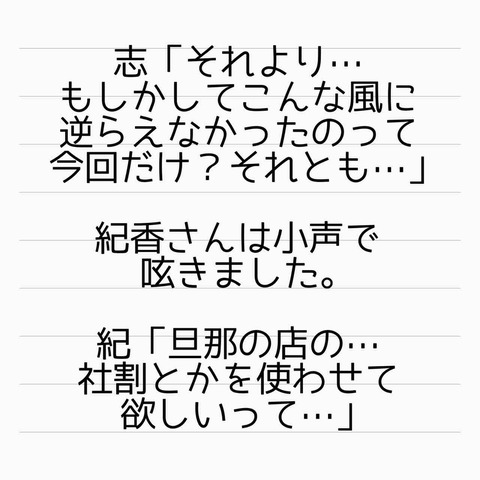 志「それより…
もしかしてこんな風に
逆らえなかったのって
今回だけ？それとも…」
紀香さんは小声で
呟きました。
紀「旦那の店の…
社割とかを使わせて
欲しいって…」